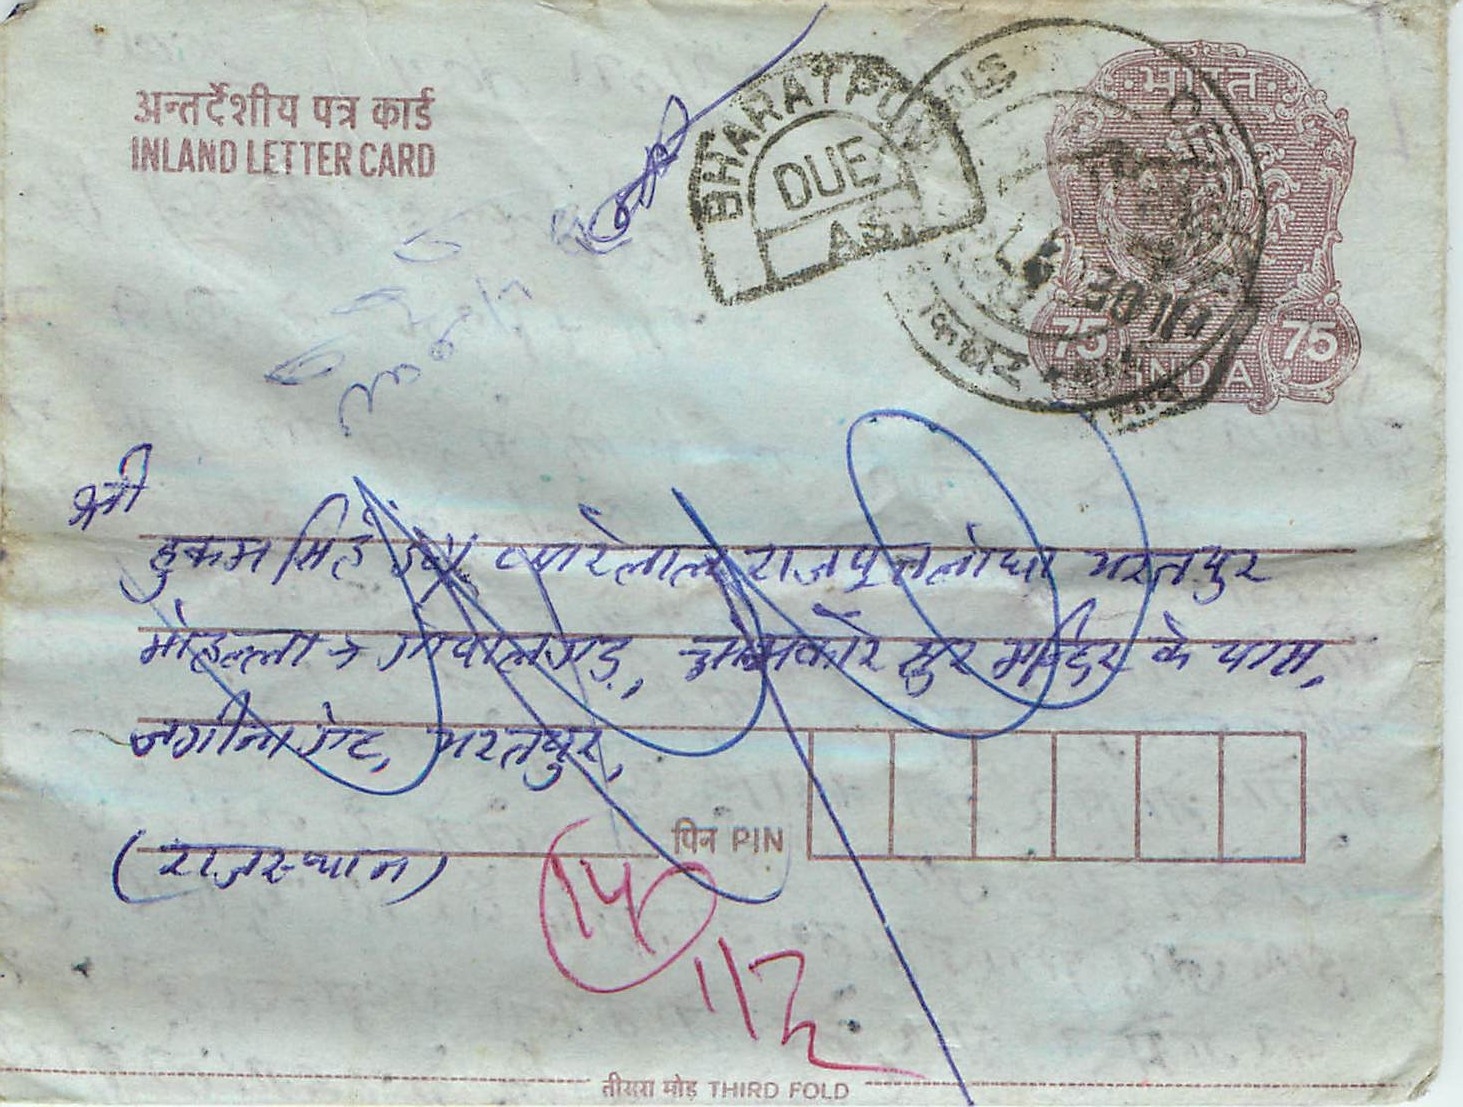 अन्तर्देशीय पत्र कार्ड
INLAND LETTER CARD
BHARATPUR
DUE
AS.
भारत
75 INDIA 75
श्री
हुकम सिंह प्यारेलाल राजपूत लोधा भरतपुर
मोहल्ला → गोपालगड़, मन्दिर के पास,
जगीना गेट, भरतपुर,
(राजस्थान)
पिन PIN
14
112
तीसरा मोड़ THIRD FOLD